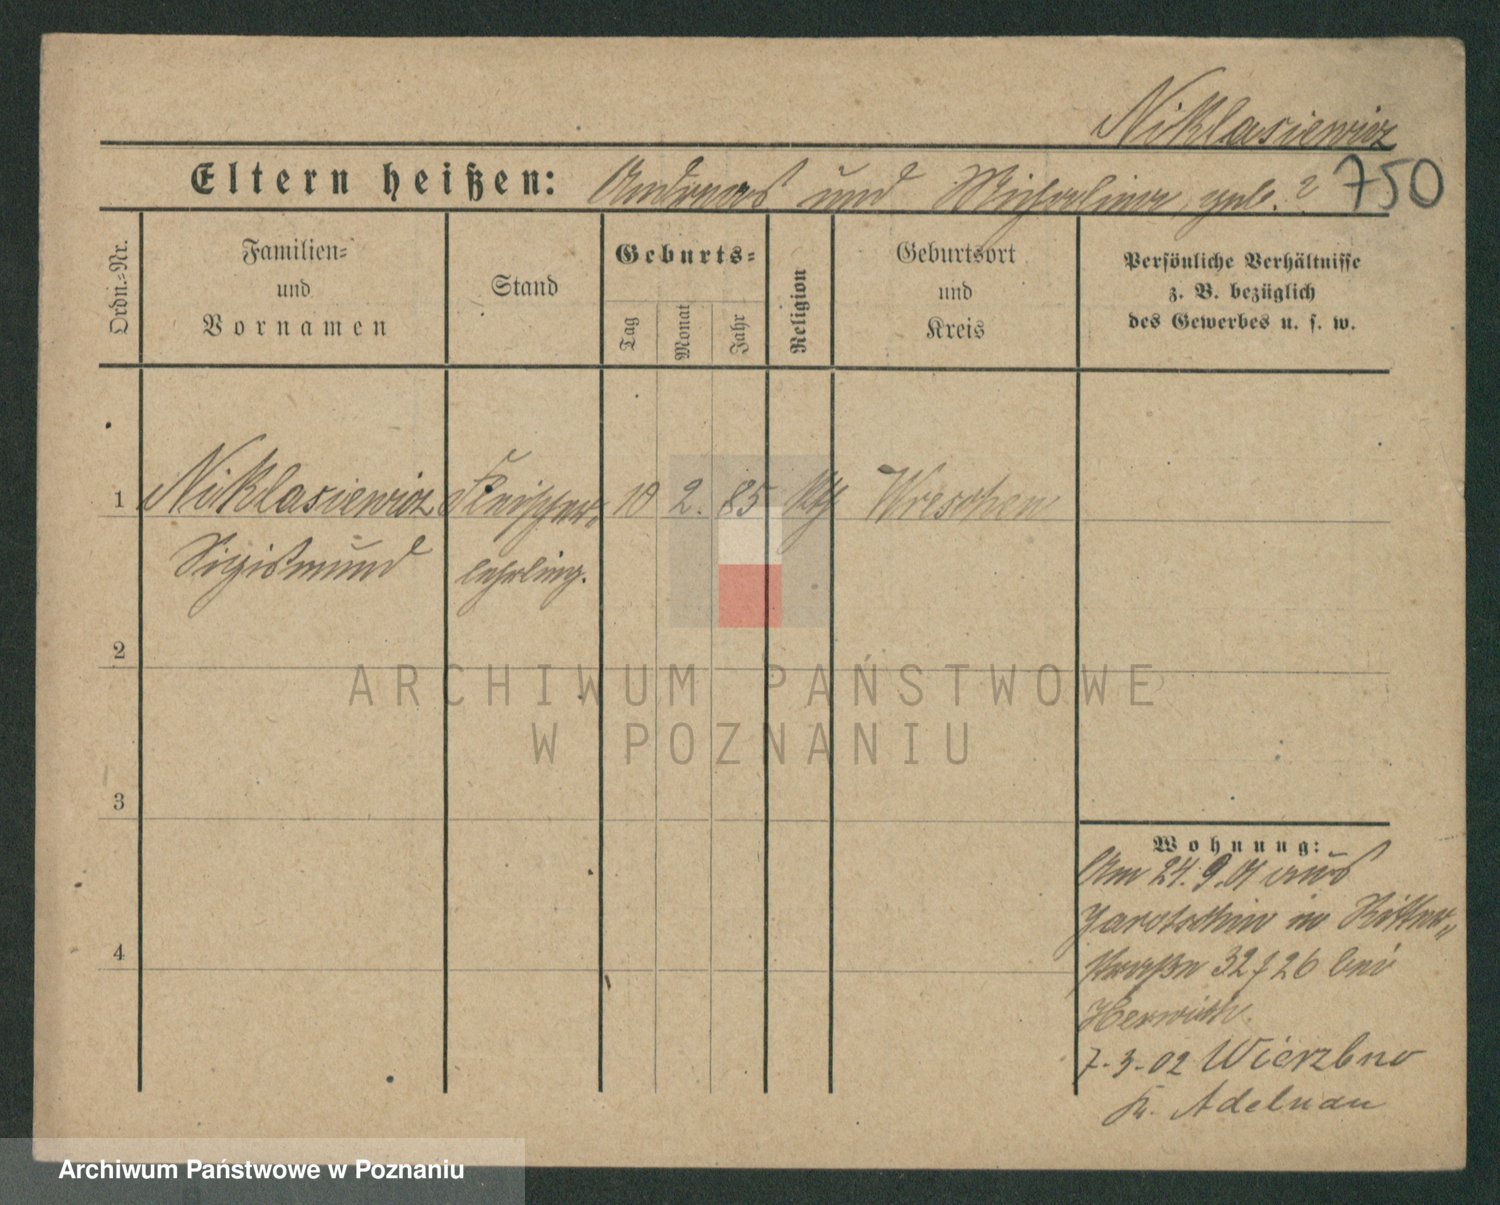 Niklasiewicz
Eltern heißen: Andreas und Michalina geb. ? 750
Ordn.-Nr.
Familien-
und
Vornamen
Stand
Geburts-
Tag
Monat
Jahr
Religion
Geburtsort
und
Kreis
Persönliche Verhältnisse
z. B. bezüglich
des Gewerbes u. s. w.
1 Niklasiewicz Fleischer- 10 2. 85 kth Wreschen
Sigismund lehrling.
2
3
4
Wohnung:
Am 24.9.01 aus
Jarotschin in Ritter-
straße 32/26 bei
7-3-02 Wierzbno
Kr. Adelnau
ARCHIWUM PAŃSTWOWE
W POZNANIU
Archiwum Państwowe w Poznaniu